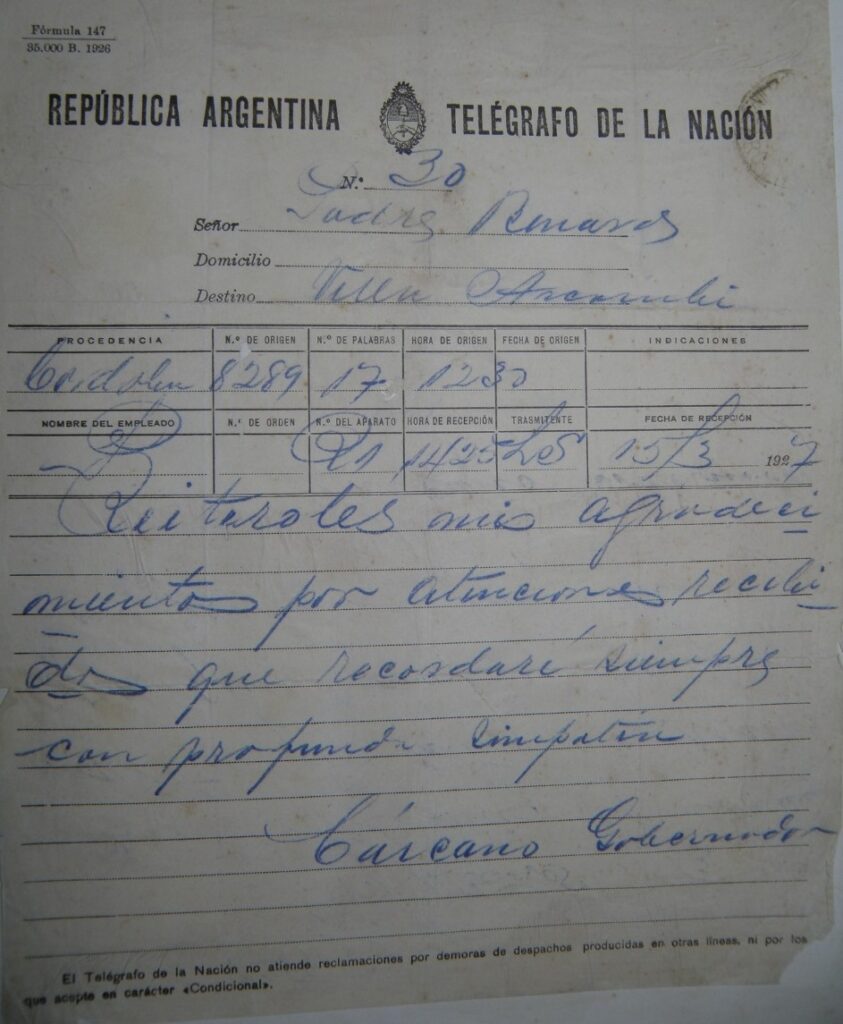 Fórmula 147
35.000 B. 1926
REPÚBLICA ARGENTINA TELÉGRAFO DE LA NACIÓN
N.° 30
Señor Padre
Domicilio
Destino Villa Ascasubi
PROCEDENCIA N.° DE ORIGEN N.° DE PALABRAS HORA DE ORIGEN FECHA DE ORIGEN INDICACIONES
Córdoba 8289 17 1230
NOMBRE DEL EMPLEADO N.° DE ORDEN N.° DEL APARATO HORA DE RECEPCIÓN TRASMITENTE FECHA DE RECEPCIÓN
14/25 15/3 1927
Reiteroles mis agradeci
mientos por atenciones recibi
das que recordaré siempre
con profunda simpatía
Cárcano Gobernador
El Telégrafo de la Nación no atiende reclamaciones por demoras de despachos producidas en otras líneas, ni por los
que acepte en carácter «Condicional».